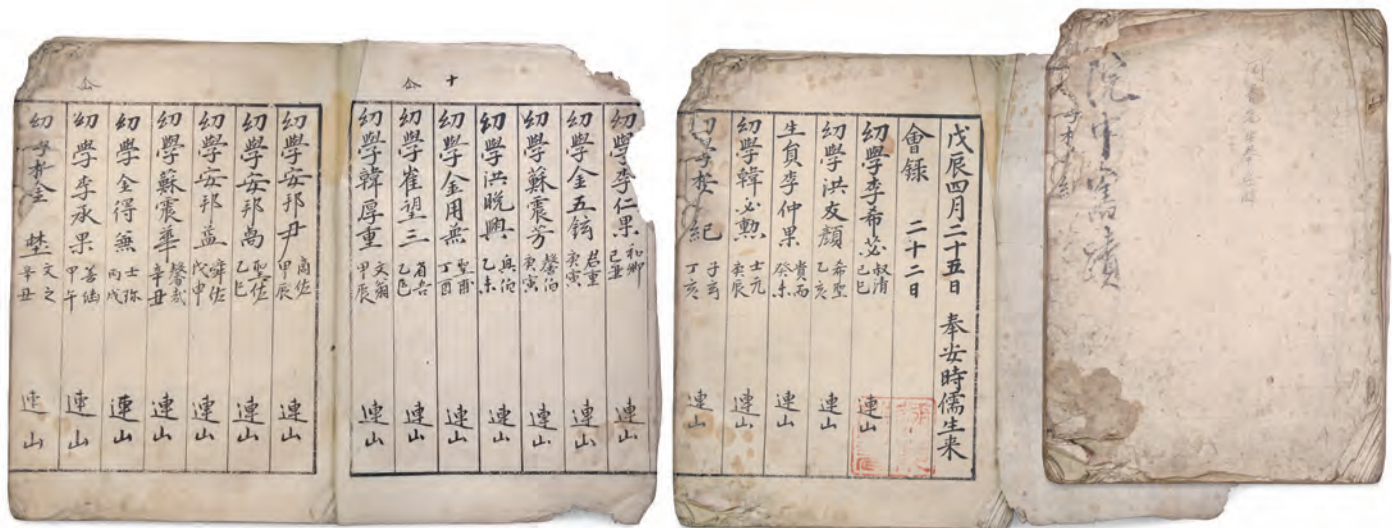 院中
戊辰四月二十五日 奉安時儒生来
會録 二十二日
幼學李希苾 叔清 己巳 連山
幼學洪友顔 希聖 乙亥 連山
生貟李仲果 貴而 癸未 連山
幼學韓必勲 士元 庚辰 連山
紀 丁亥 連山
十
幼學李仁果 和卿 己丑 連山
幼學金五鉉 君重 庚寅 連山
幼學蘇震芳 馨伯 庚寅 連山
幼學洪晚興 興伯 乙未 連山
幼學金用兼 聖甫 丁酉 連山
幼學崔望三 省吾 乙巳 連山
幼學韓厚重 文翁 甲辰 連山
幼學安邦尹 商佐 甲辰 連山
幼學安邦卨 聖佐 乙巳 連山
幼學安邦益 舜佐 戊申 連山
幼學蘇震華 馨哉 辛丑 連山
幼學金得兼 士弥 丙戌 連山
幼學李承果 甲午 連山
幼學金 文之 辛丑 連山